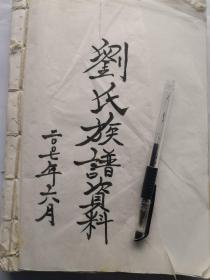 劉氏族譜資料
二〇〇七年六月